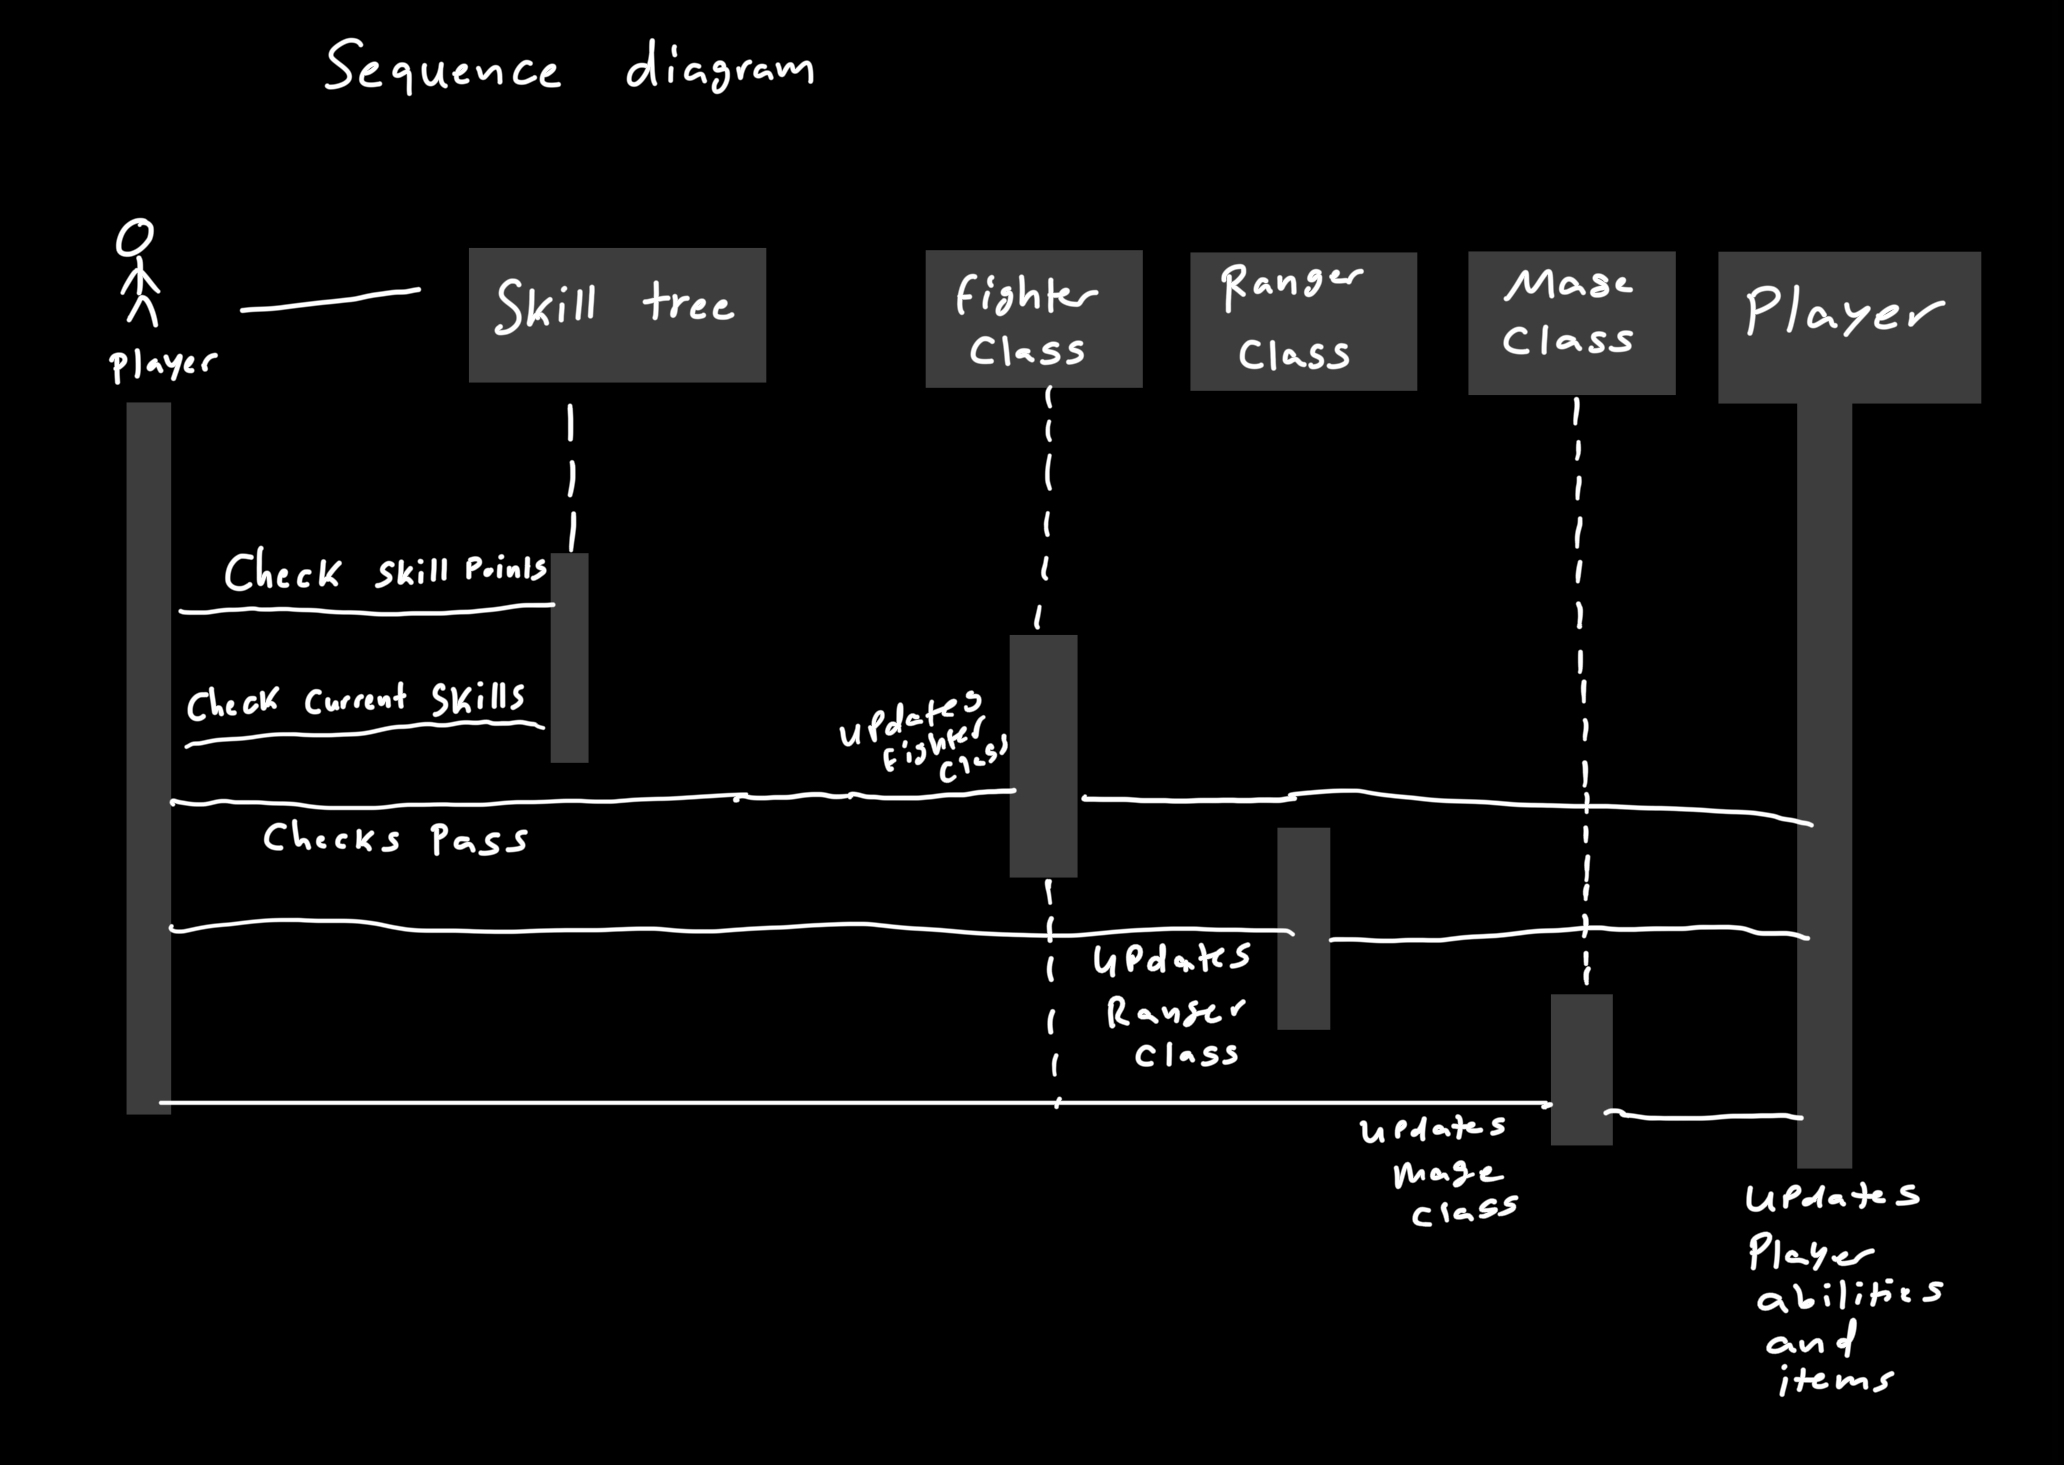 Sequence diagram
Player
Skill tree
Fighter
Class
Ranger
Class
Mage
Class
Player
Check Skill Points
Check Current Skills
Updates
Fighter
Class
Checks Pass
Updates
Ranger
Class
Updates
Mage
Class
Updates
Player
abilities
and
items